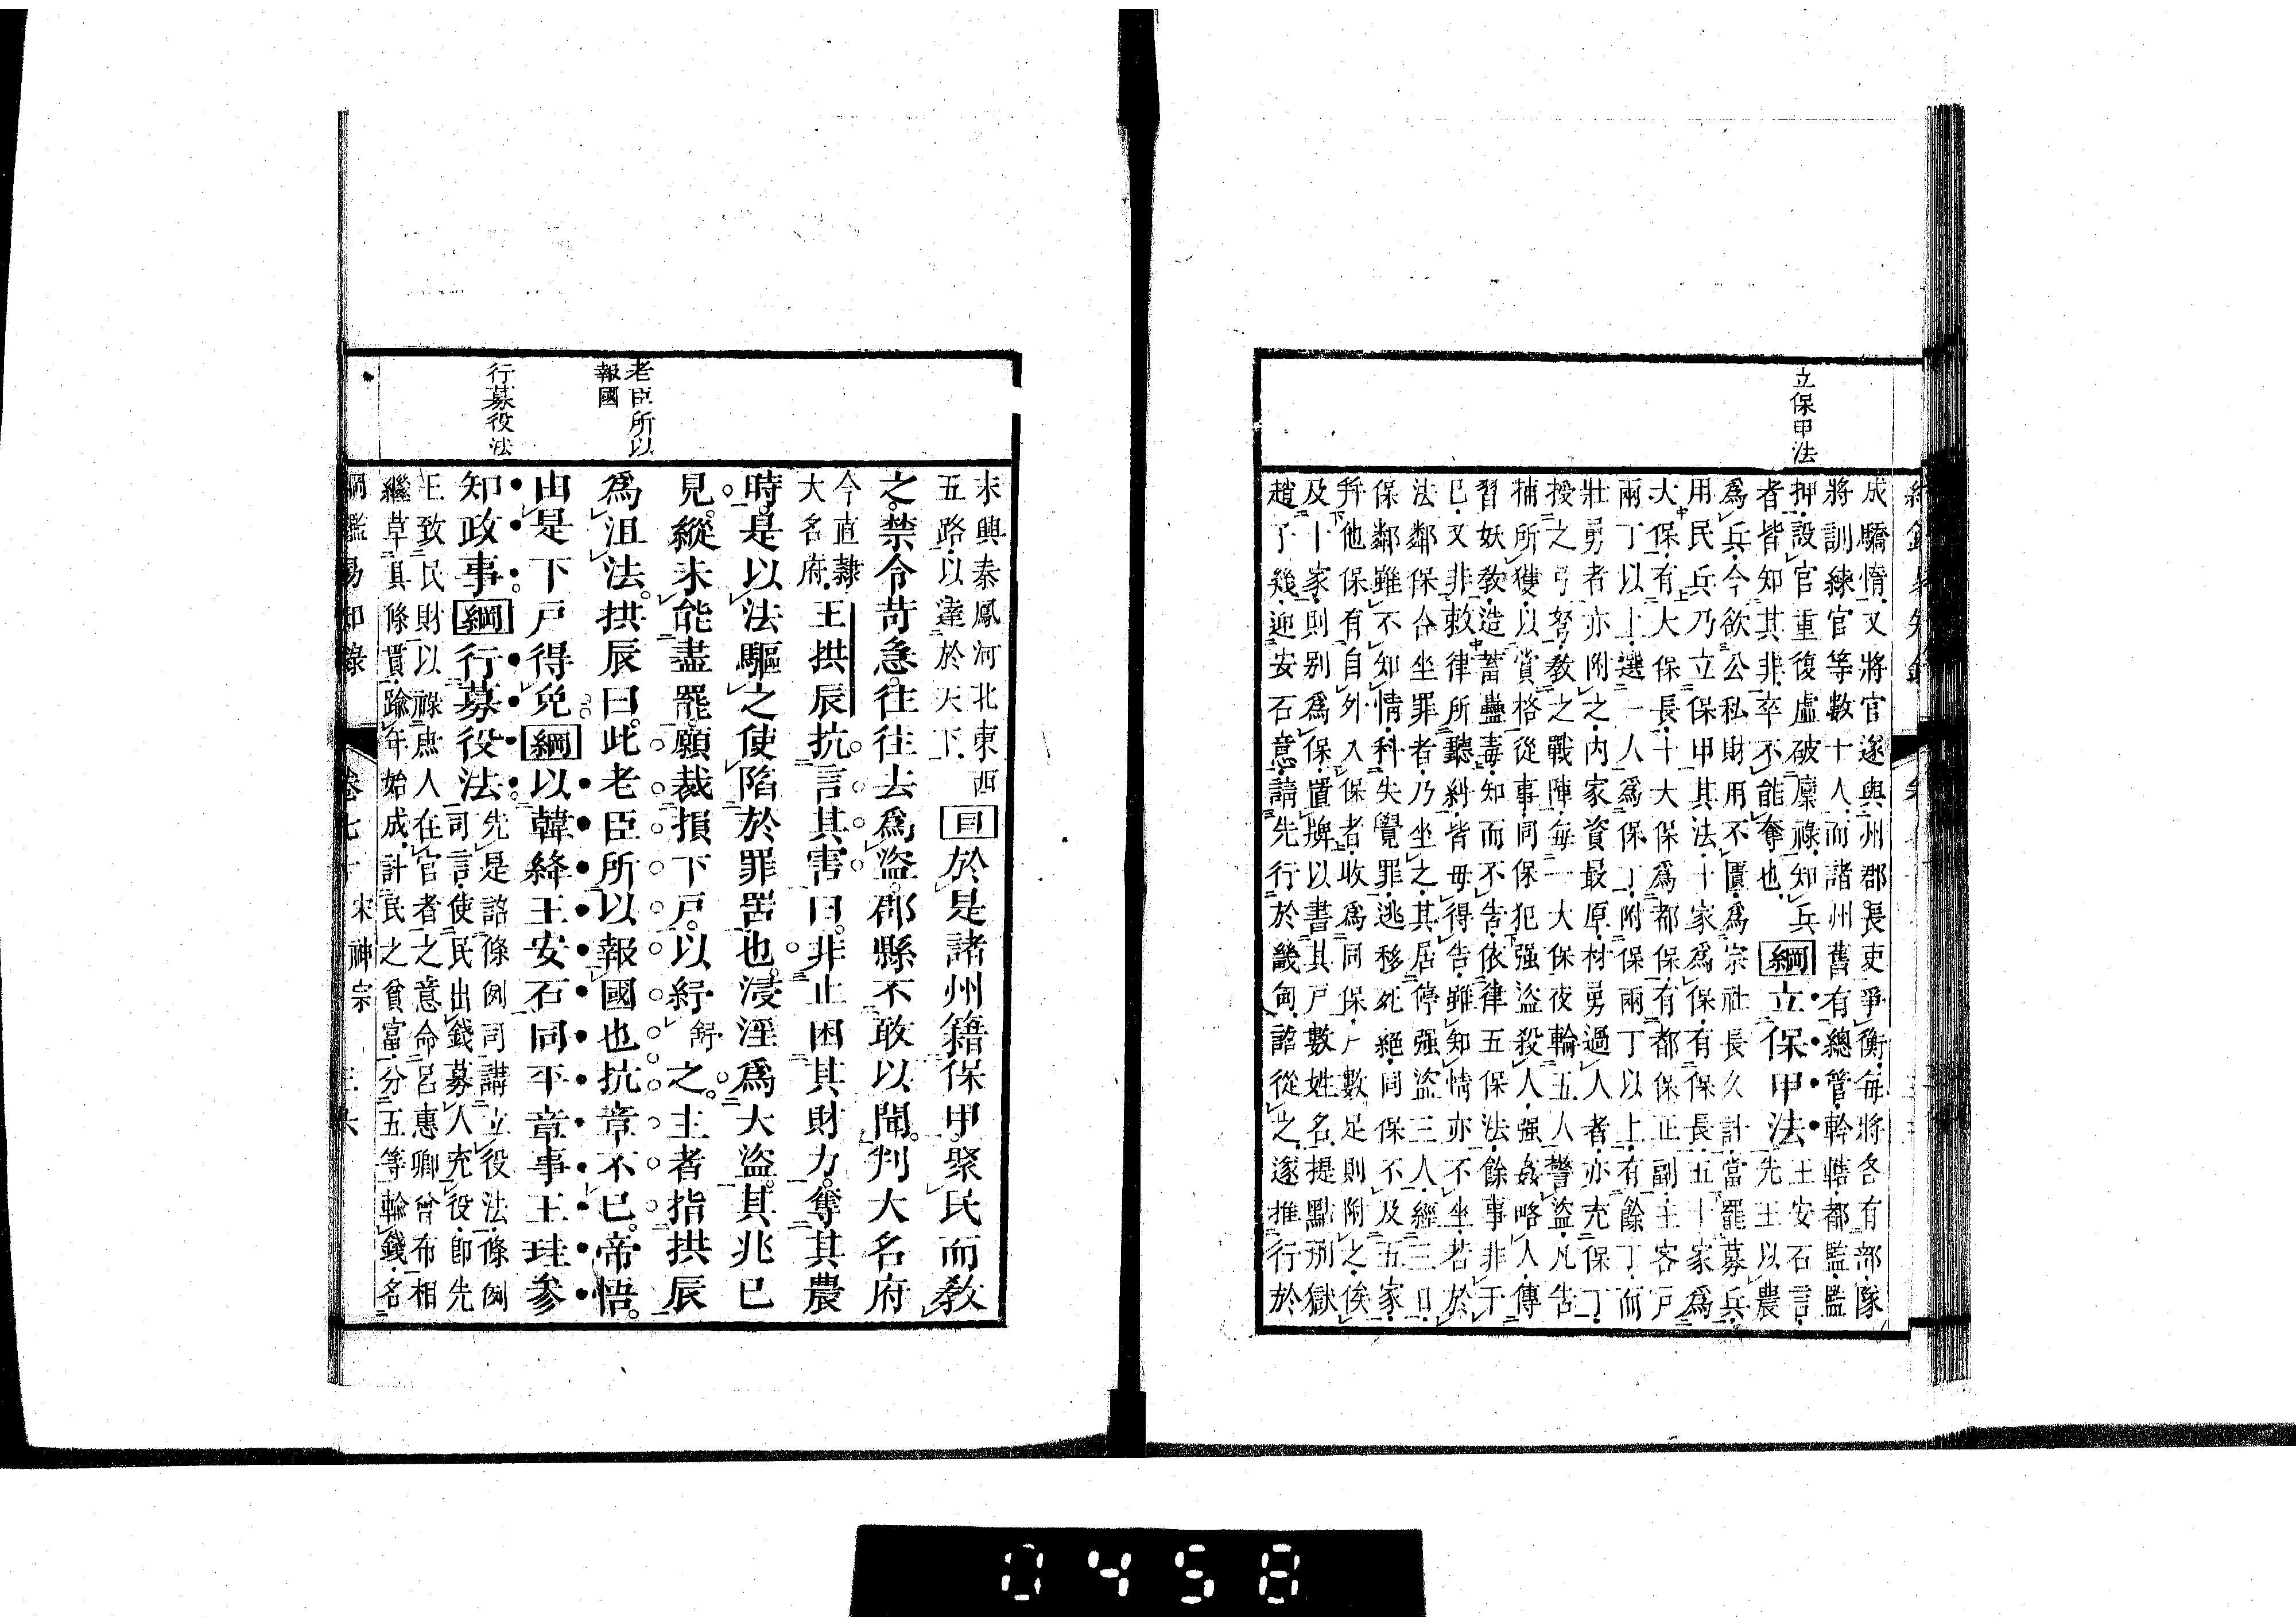 立保甲法
成驕惰又將官遂與州郡長吏爭衡每將各有部隊
將訓練官等數十人而諸州舊有總管幹轄都監監
押設官重復虛破廩祿知兵
者皆知其非卒不能奪也
綱立保甲法
王安石言
先王以農
爲兵今欲公私財用不匱爲宗社長久計當罷募兵
用民兵乃立保甲其法十家爲保有保長五十家爲
大保有大保長十大保爲都保有都保正副主客戶
兩丁以上選一人爲保丁附保兩丁以上有餘丁而
壯勇者亦附之內家資最原材勇過人者亦充保丁
授之弓弩敎之戰陣每一大保夜輪五人警盜凡告
捕所獲以賞格從事同保犯强盜殺人强姦略人傳
習妖敎造蓄蠱毒知而不告依律五保法餘事非干
已又非敕律所聽糾皆毋得告雖知情亦不坐若於
法鄰保合坐罪者乃坐之其居停强盜三人經三日
保鄰雖不知情科失覺罪逃移死絕同保不及五家
幷他保有自外入保者收爲同保戶數足則附之俟
及十家則別爲保置牌以書其戶數姓名提點刑獄
趙子幾迎安石意請先行於畿甸詔從之遂推行於
老臣所以
報國
行募役法
永興秦鳳河北東西
五路以達於天下
目於是諸州籍保甲聚民而敎
之禁令苛急往往去爲盜郡縣不敢以聞判大名府
今直隸
大名府
王拱辰抗言其害曰非止困其財力奪其農
時是以法驅之使陷於罪罟也浸淫爲大盜其兆已
見縱未能盡罷願裁損下戶以紓舒之主者指拱辰
爲沮法拱辰曰此老臣所以報國也抗章不已帝悟
由是下戶得免綱以韓絳王安石同平章事王珪參
知政事綱行募役法
先是詔條例司講立役法條例
司言使民出錢募人充役卽先
王致民財以祿庶人在官者之意命呂惠卿曾布相
繼草具條貫踰年始成計民之貧富分五等輸錢名
綱鑑易知錄 卷七十 宋神宗